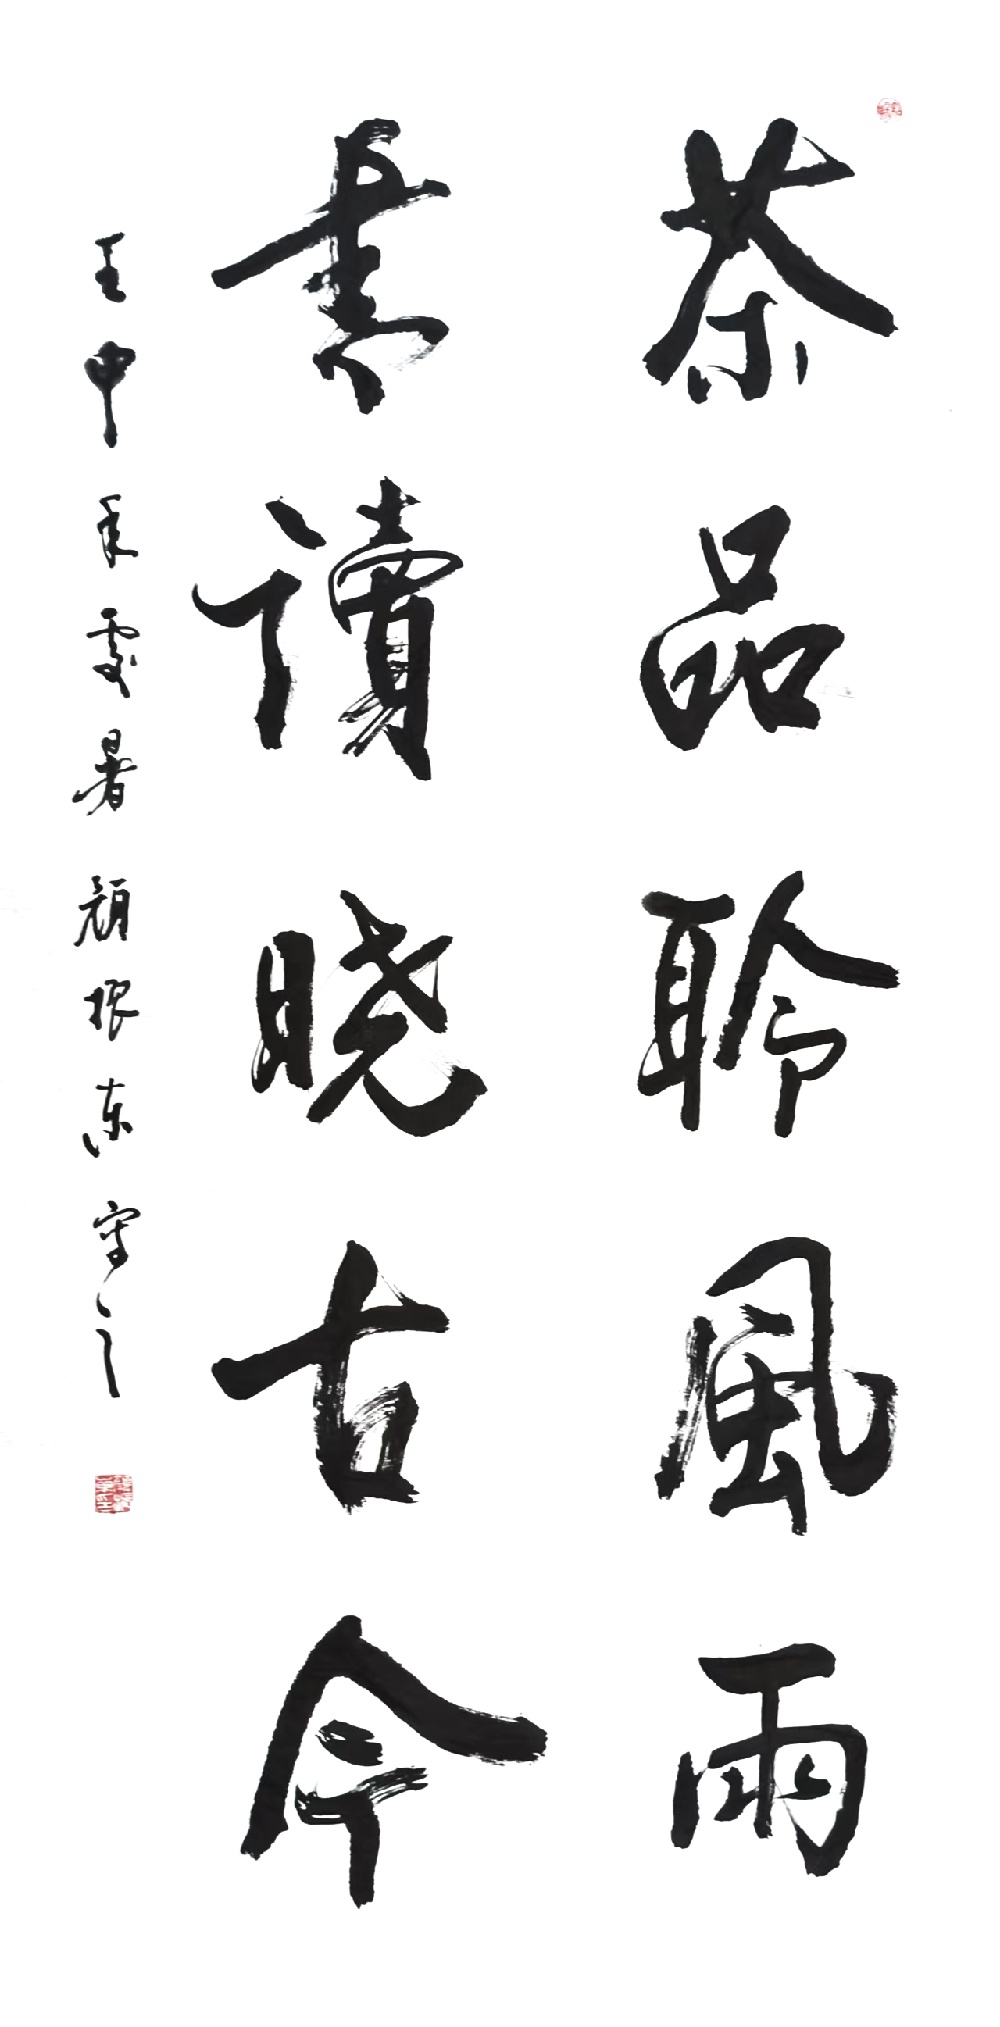 茶品聆風雨
書讀晓古今
壬申年處暑顏根東寫之